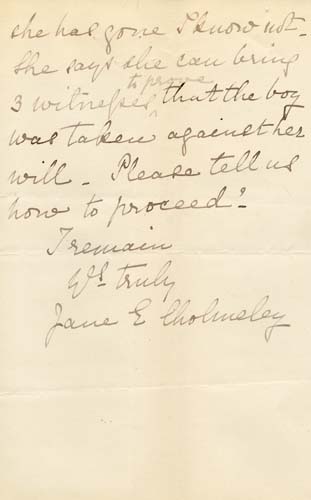 she has gone I know not -
She says she can bring
to prove
3 witnesses that the boy
was taken against her
will - Please tell us
how to proceed?
I remain
Yrs truly
Jane E Cholmeley